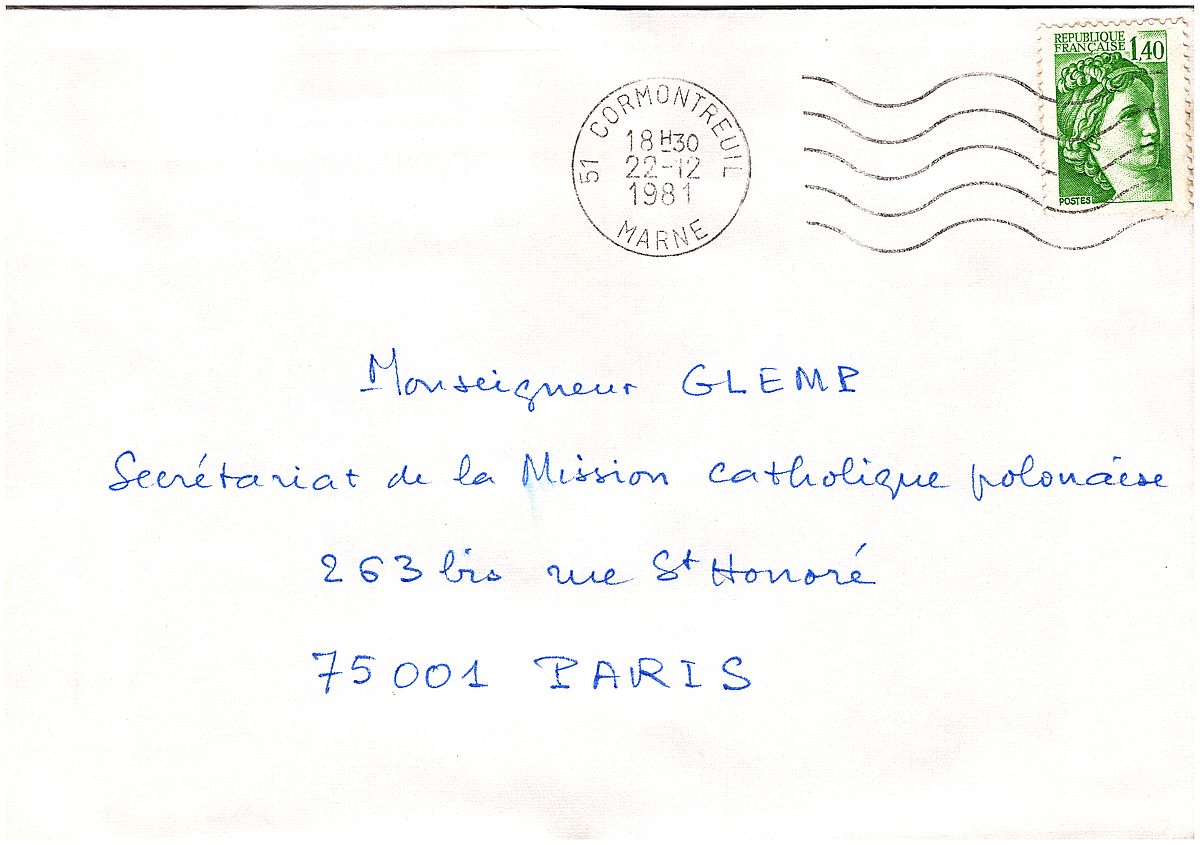 REPUBLIQUE
FRANÇAISE
1,40
POSTES
51 CORMONTREUIL
18H30
22-12
1981
MARNE
Monseigneur GLEMP
Secrétariat de la Mission catholique polonaise
263 bis rue St Honoré
75001 PARIS